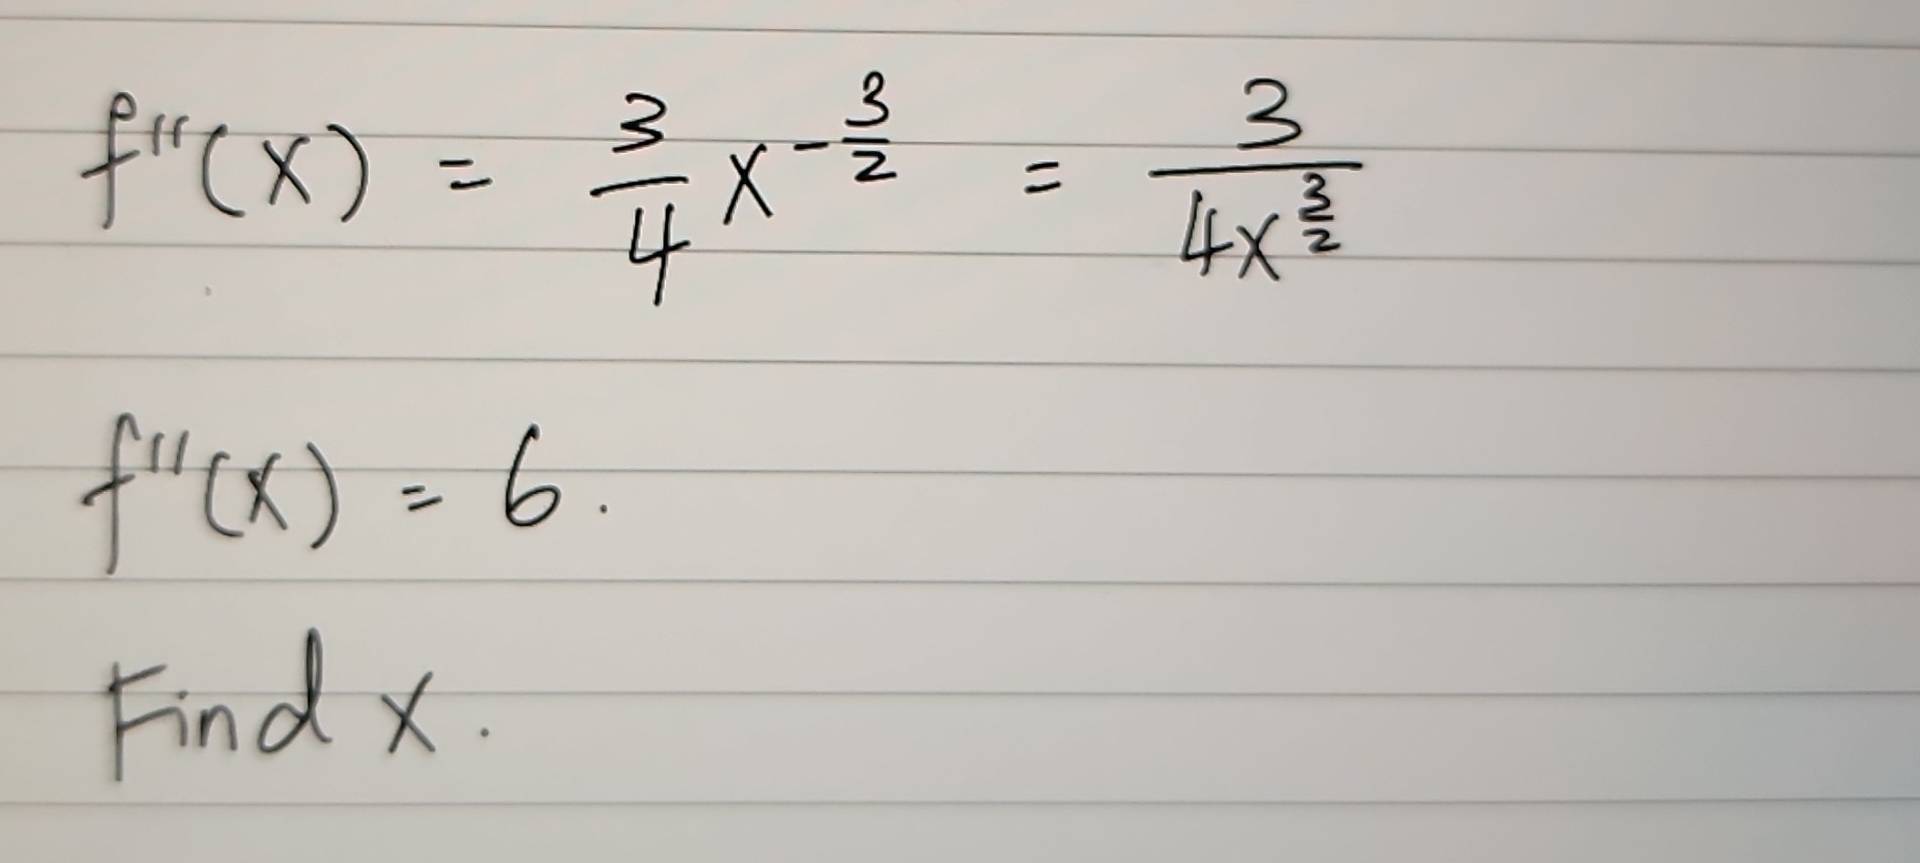 f''(x) = 3/4 x^(-3/2) = 3/(4x^(3/2))
f''(x) = 6.
Find x.